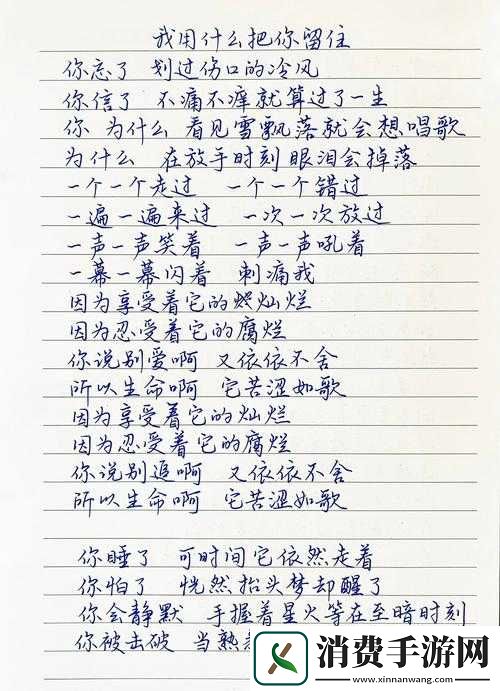 我用什么把你留住
你忘了 划过伤口的冷风
你信了 不痛不痒就算过了一生
你 为什么 看见雪飘落就会想唱歌
为什么 在放手时刻眼泪会掉落
一个一个走过 一个一个错过
一遍一遍来过 一次一次放过
一声一声笑着 一声一声吼着
一幕一幕闪着 刺痛我
因为享受着它的灿烂
因为忍受着它的腐烂
你说别爱啊 又依依不舍
所以生命啊 它苦涩如歌
因为享受着它的灿烂
因为忍受着它的腐烂
你说别追啊 又依依不舍
所以生命啊 它苦涩如歌
你睡了 可时间它依然走着
你怕了 恍然抬头梦却醒了
你会静默 手握着星火等在至暗时刻
你被击破 当熟
消费手游网
www.xinnanwang.com